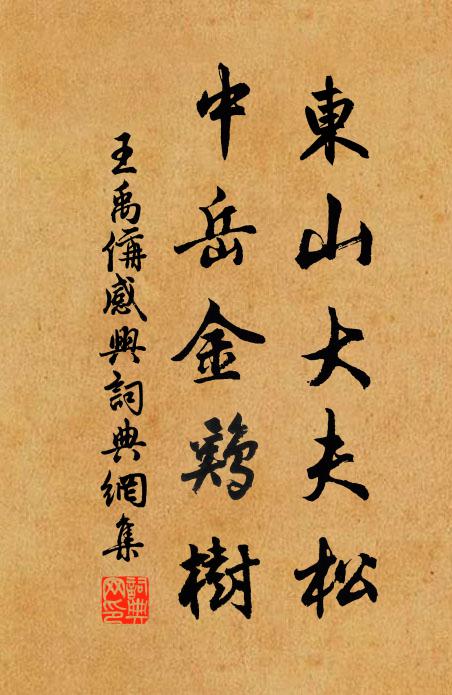 東山大夫松
中岳金鷄樹
王禹偁感興詞典網集
詞典
网印